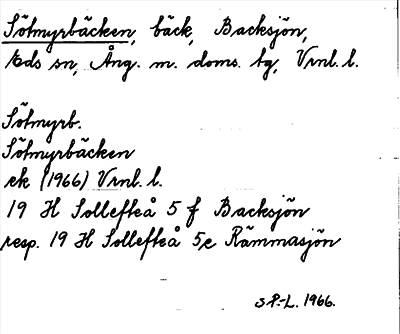 Sötmyrbäcken, bäck, Backsjön,
Eds sn, Ång. m. doms. lg, Vrnl. l.
Sötmyrb.
Sötmyrbäcken
ek (1966) Vrnl. l.
19 H Sollefteå 5 f Backsjön
resp. 19 H Sollefteå 5e Rämmasjön
SP.-L. 1966.